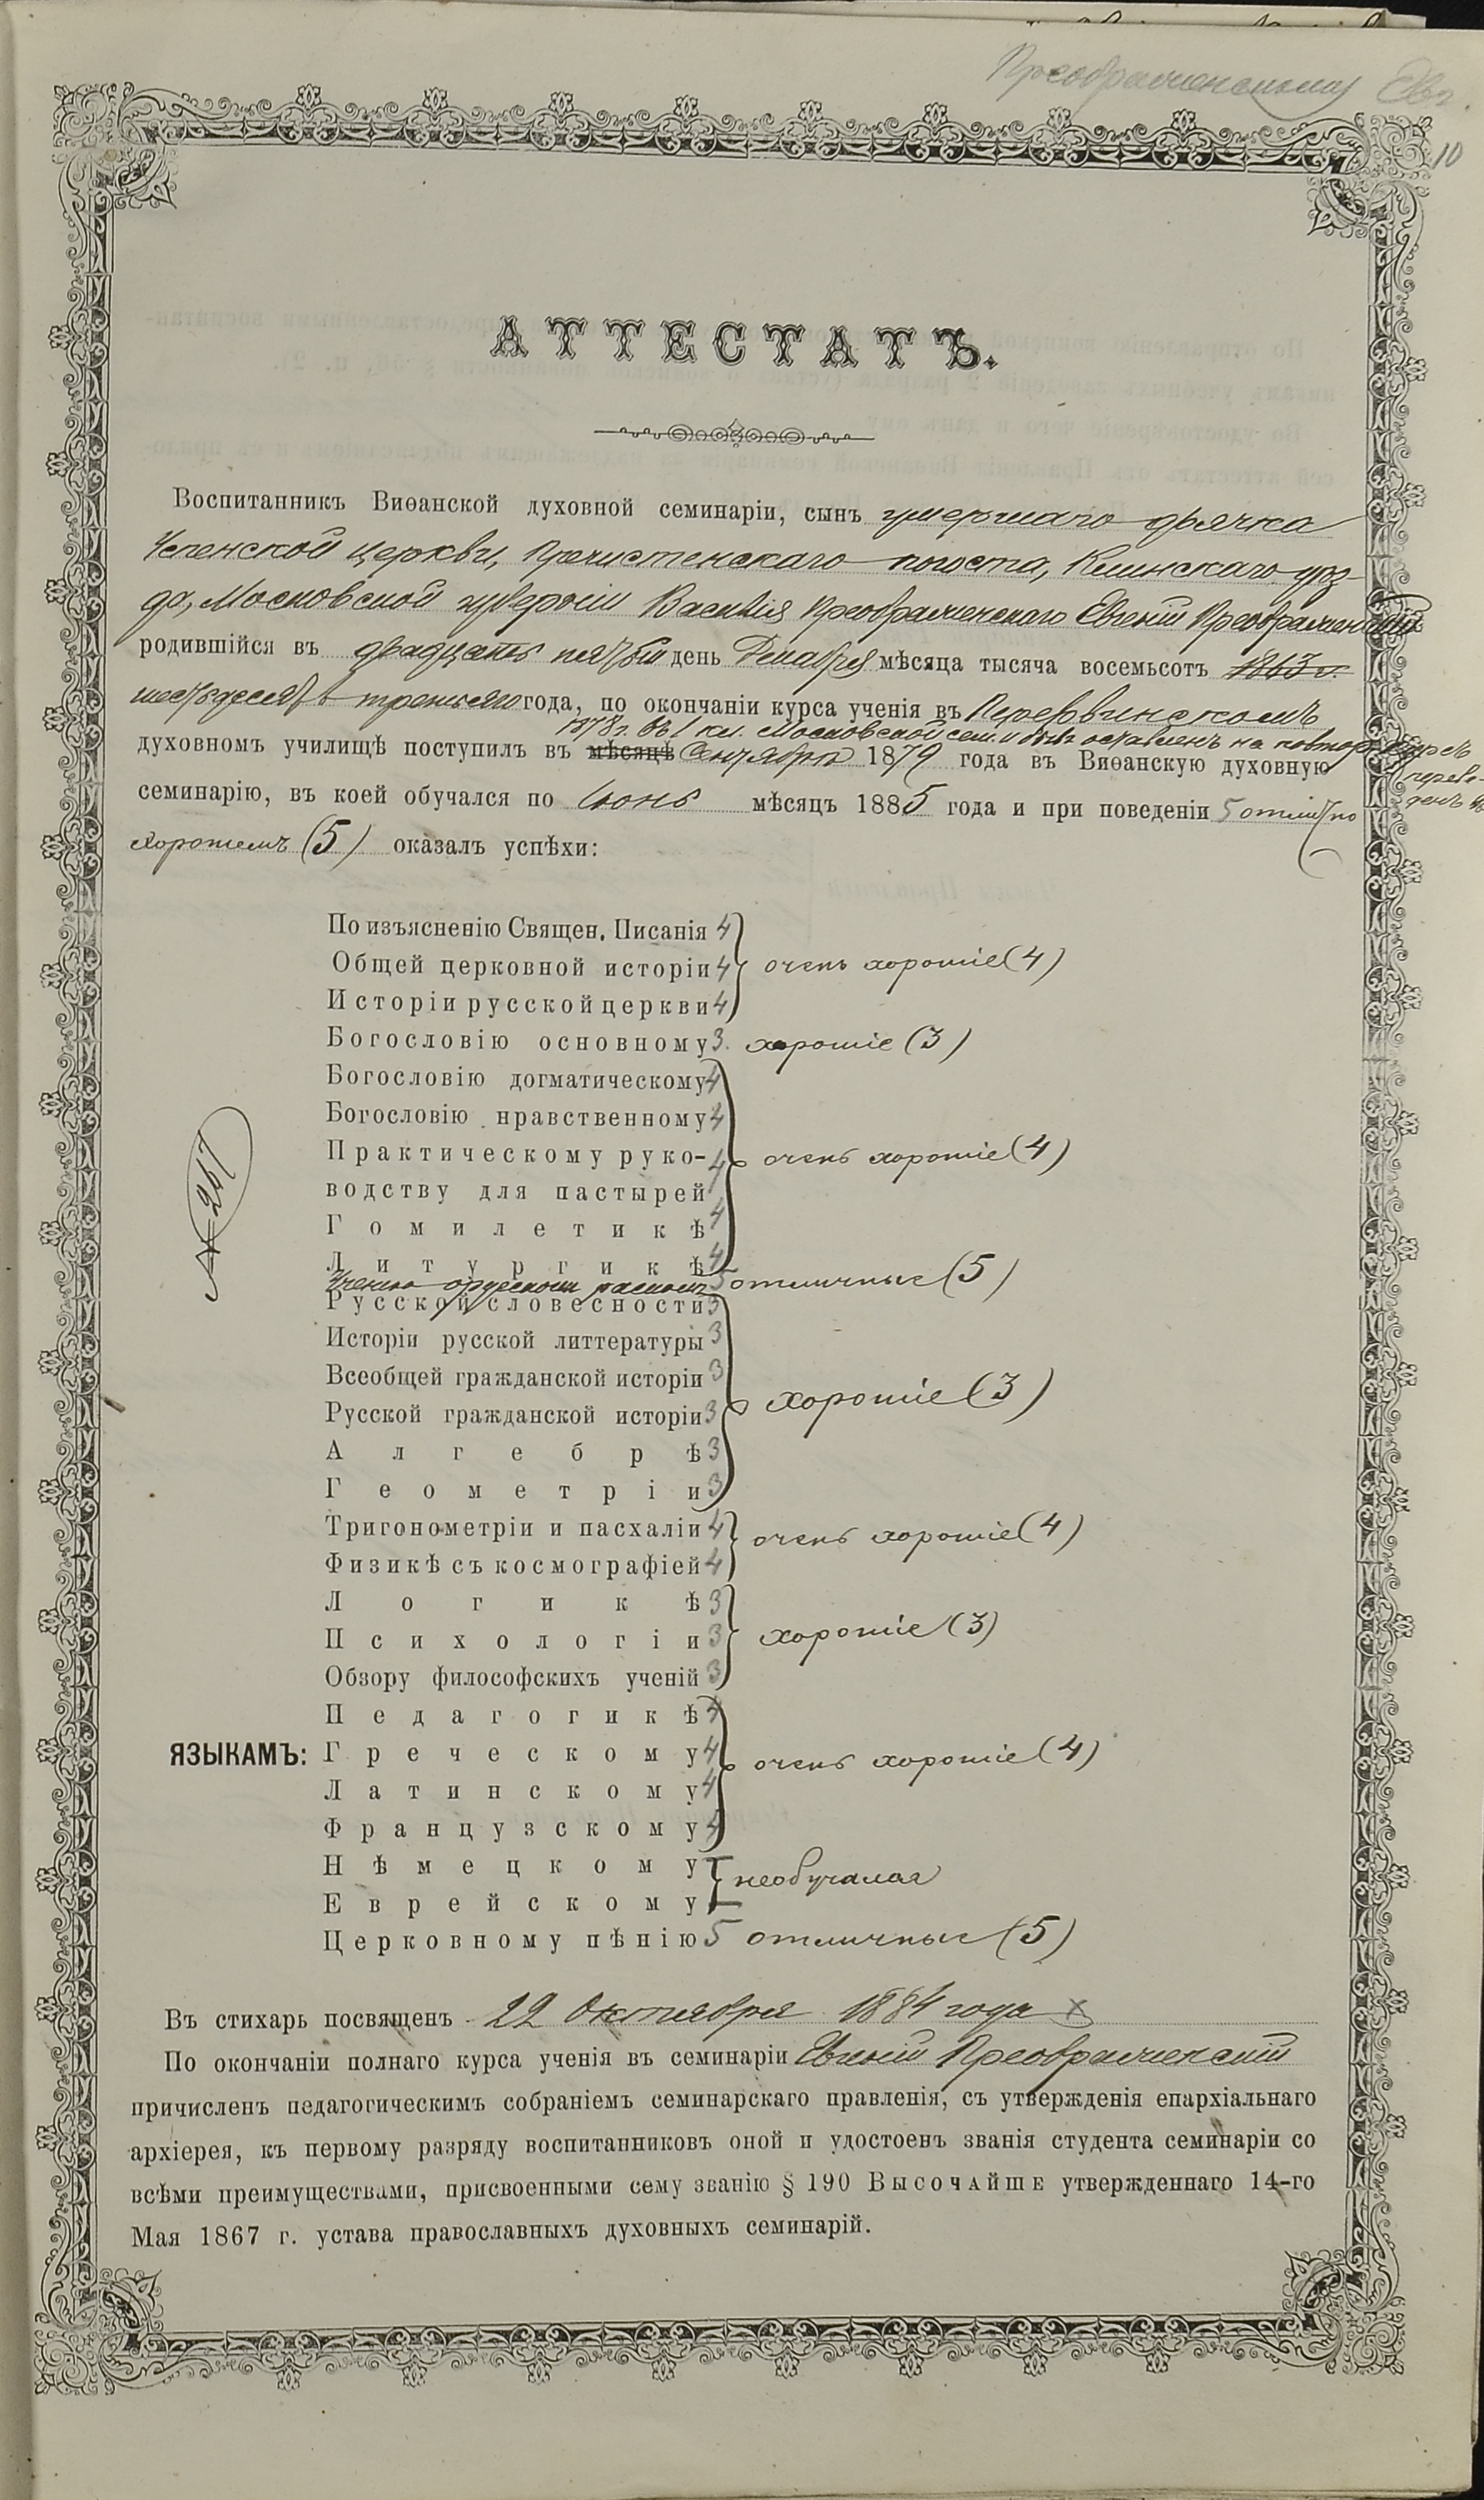 Преображенскому Евг.
10
АТТЕСТАТЪ.
Воспитанникъ Виѳанской духовной семинаріи, сынъ умершаго дьячка
Успенской церкви, Пречистенскаго погоста, Клинскаго уѣз-
да, Московской губерніи Василія Преображенскаго Евгеній Преображенскій
родившійся въ двадцать пятый день Декабря мѣсяца тысяча восемьсотъ 1863 г.
шестьдесятъ третьяго года, по окончаніи курса ученія въ Перервинскомъ
1878 г. въ 1 кл. Московской сем. и бывъ оставленъ на повтор. курсъ
духовномъ училищѣ поступилъ въ мѣсяцѣ Сентябрѣ 1879 года въ Виѳанскую духовную
переве-
денъ въ
семинарію, въ коей обучался по Іюнь мѣсяцъ 1885 года и при поведеніи 5 отлично
хорошемъ (5) оказалъ успѣхи:
По изъясненію Священ. Писанія 4
Общей церковной исторіи 4 очень хорошіе (4)
Исторіи русской церкви 4
Богословію основному 3. хорошіе (3)
Богословію догматическому 4
Богословію нравственному 4
Практическому руко- 4 очень хорошіе (4)
водству для пастырей
Гомилетикѣ 4
Литургикѣ 4
Ученію о русскомъ расколѣ 5 отличные (5)
Русской словесности 3
Исторіи русской литтературы 3
Всеобщей гражданской исторіи 3
хорошіе (3)
Русской гражданской исторіи 3
Алгебрѣ 3
Геометріи 3
Тригонометріи и пасхаліи 4 очень хорошіе (4)
Физикѣ съ космографіей 4
Логикѣ 3
Психологіи 3 хорошіе (3)
Обзору философскихъ ученій 3
Педагогикѣ 4
ЯЗЫКАМЪ: Греческому 4 очень хорошіе (4)
Латинскому 4
Французскому 4
Нѣмецкому
необучался
Еврейскому
Церковному пѣнію 5 отличные (5)
№ 247
Въ стихарь посвященъ 22 Октября 1884 года
По окончаніи полнаго курса ученія въ семинаріи Евгеній Преображенскій
причисленъ педагогическимъ собраніемъ семинарскаго правленія, съ утвержденія епархіальнаго
архіерея, къ первому разряду воспитанниковъ оной и удостоенъ званія студента семинаріи со
всѣми преимуществами, присвоенными сему званію § 190 Высочайше утвержденнаго 14-го
Мая 1867 г. устава православныхъ духовныхъ семинарій.